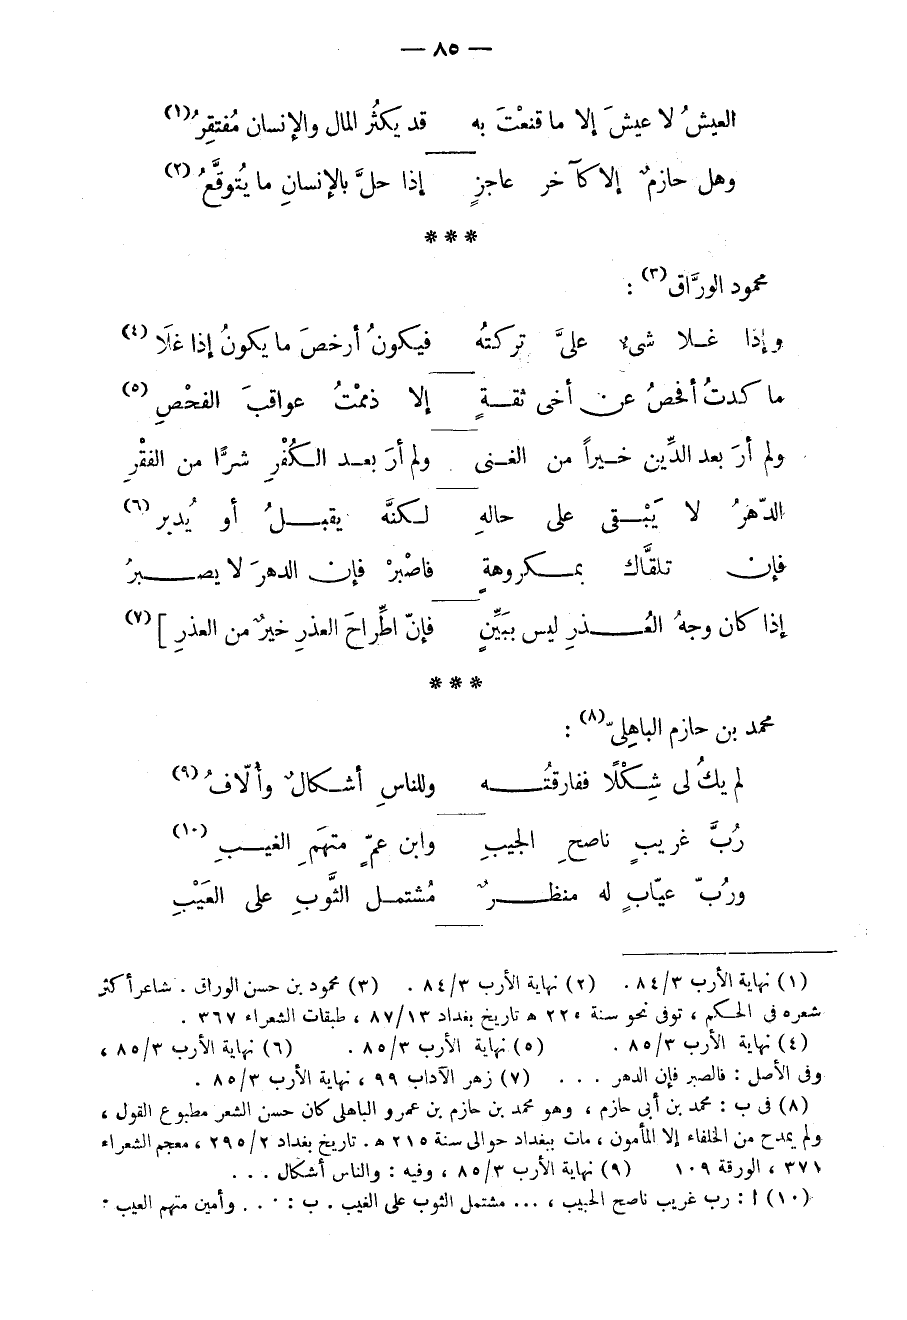 — ٨٥ —
العيشُ لا عيشَ إلا ما قنعْتَ به قد يكثُر المال والإنسان مُفتقِرُ (١)
وهل حازمٌ إلا كآخر عاجزٍ إذا حلَّ بالإنسانِ ما يُتوقَّعُ (٢)
***
محمود الورَّاق (٣) :
وإذا غلا شىء علىَّ تركتُه فيكونُ أرخصَ ما يكونُ إذا غلَا (٤)
ما كدتُ أفحصُ عن أخى ثقةٍ إلا ذممْتُ عواقبَ الفحْصِ (٥)
ولم أرَ بعد الدِّين خيراً من الغنى ولم أرَ بعد الكُفْرِ شرًّا من الفقْرِ
الدّهرُ لا يَبْقى على حالهِ لكنَّه يقبلُ أو يُدبر (٦)
فإن تلقَّاك بمكروهةٍ فاصْبرْ فإن الدهرَ لا يصبرُ
إذا كان وجهُ العُذرِ ليس ببَيِّنٍ فإنّ اطِّراحَ العذرِ خيرٌ من العذرِ ] (٧)
***
محمد بن حازم الباهِلىّ (٨) :
لم يكُ لى شِكْلًا ففارقتُه وللناسِ أشكالٌ وأُلّافُ (٩)
رُبَّ غريبٍ ناصحِ الجيبِ وابن عمٍّ متهَمِ الغيبِ (١٠)
ورُبّ عيّابٍ له منظرٌ مُشتمل الثَّوبِ على العَيْبِ
(١) نهاية الأرب ٨٤/٣. (٢) نهاية الأرب ٨٤/٣. (٣) محمود بن حسن الوراق . شاعر أكثر
شعره فى الحكم ، توفى نحو سنة ٢٢٥ ه تاريخ بغداد ٨٧/١٣ ، طبقات الشعراء ٣٦٧ .
(٤) نهاية الأرب ٨٥/٣. (٥) نهاية الأرب ٨٥/٣. (٦) نهاية الأرب ٨٥/٣ ،
وفى الأصل : فالصبر فإن الدهر . . . (٧) زهر الآداب ٩٩ ، نهاية الأرب ٨٥/٣ .
(٨) فى ب : محمد بن أبى حازم ، وهو محمد بن حازم بن عمرو الباهلى كان حسن الشعر مطبوع القول ،
ولم يمدح من الخلفاء إلا المأمون ، مات ببغداد حوالى سنة ٢١٥ ه. تاريخ بغداد ٢٩٥/٢ ، معجم الشعراء
٣٧١ ، الورقة ١٠٩ (٩) نهاية الأرب ٨٥/٣ ، وفيه : والناس أشكال . . .
(١٠) ا : رب غريب ناصح الحبيب ، ... مشتمل الثوب على الغيب . ب : . . . وأمين متهم العيب .